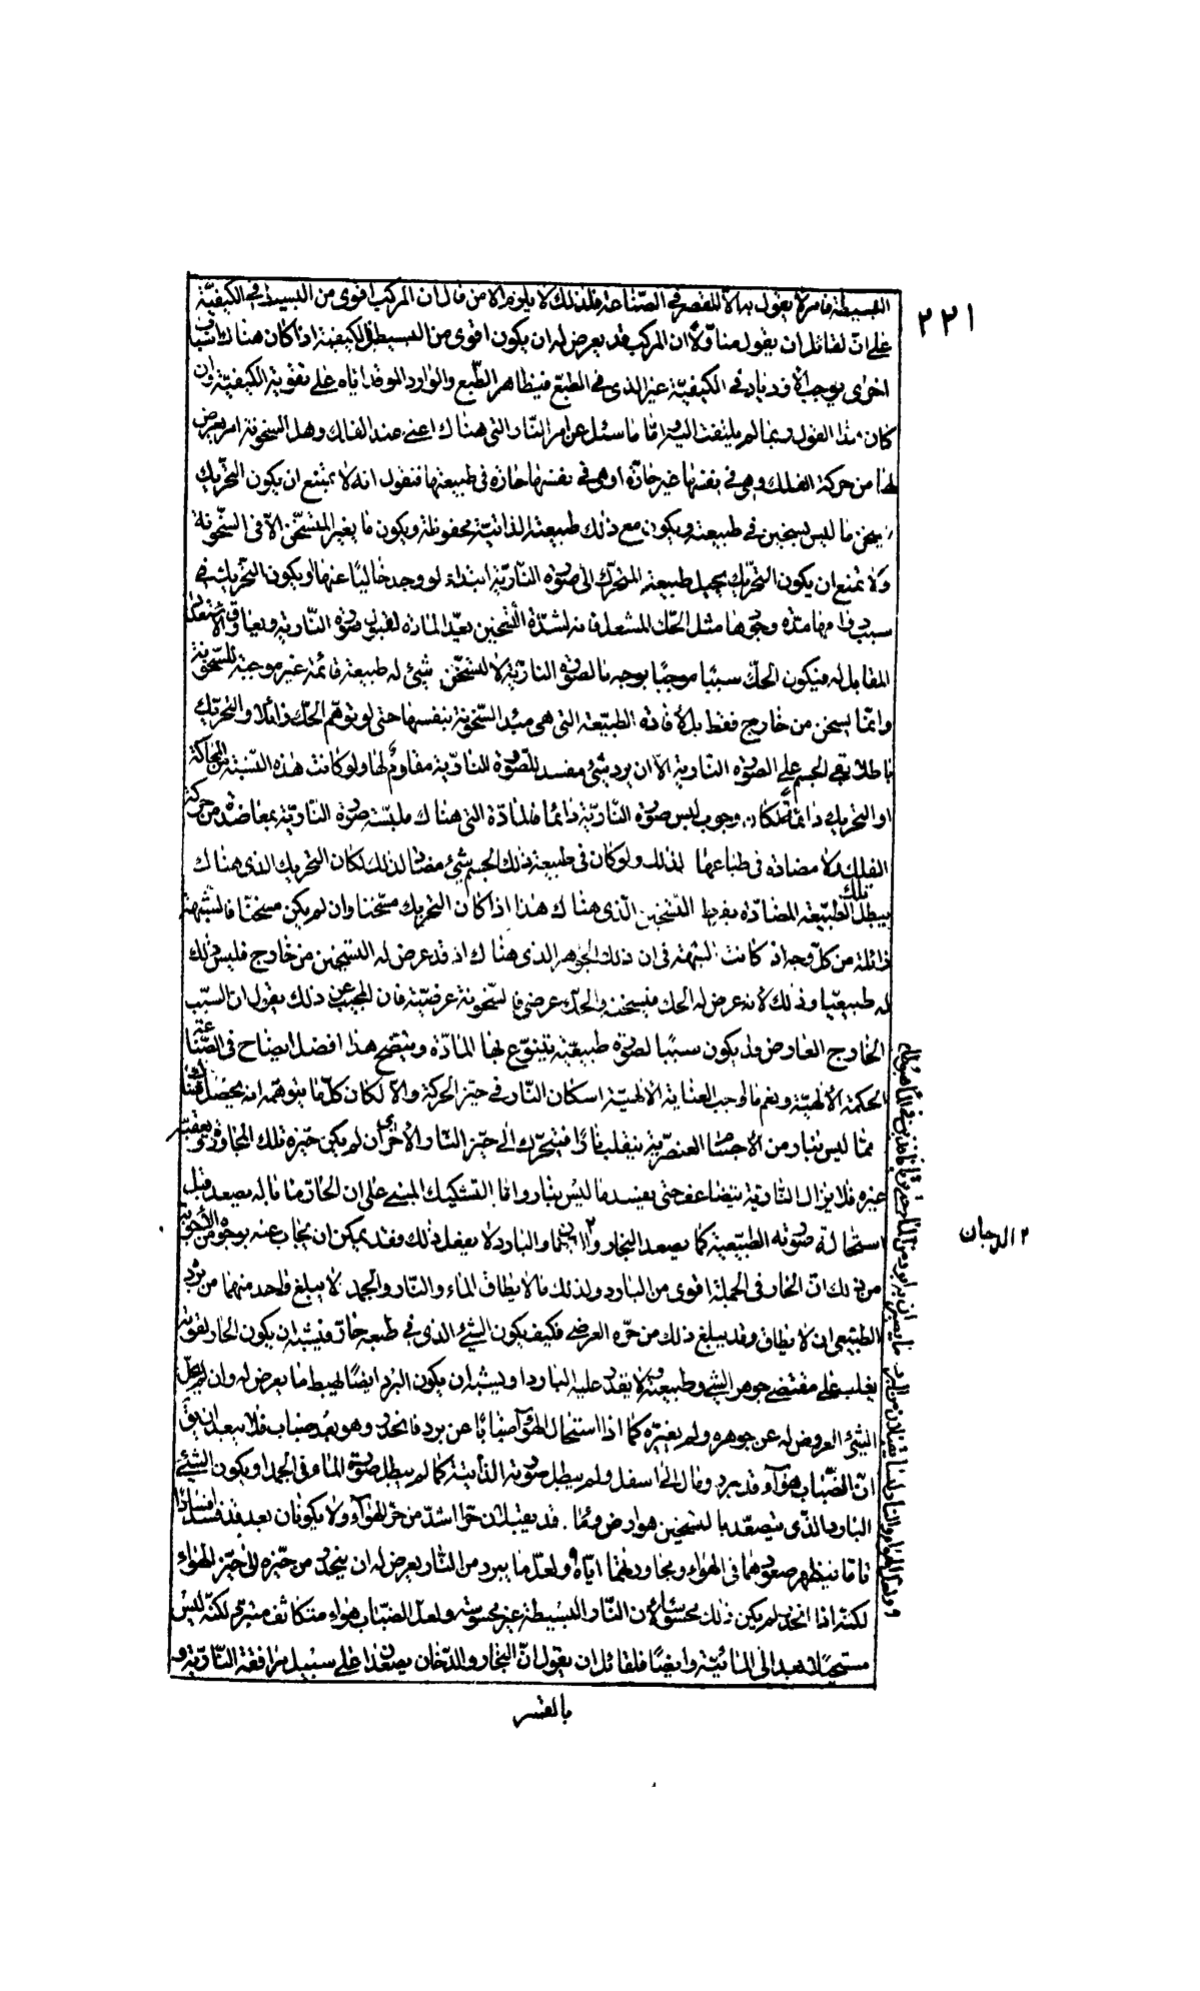 ٢٢١
البسيطة فامر لا يقول به الا المقصر في الصناعة فلذلك لا يلزم الا من قال ان المركب اقوى من البسيط في الكيفيّة
على انّ لقائل ان يقول مناولا ان المركب قد يعرض له ان يكون اقوى من البسيط في الكيفية اذا كان هناك اسباب
اخرى يوجب الازدياد في الكيفيّة غير الذى في الطبع فيتظاهر الطّبع والوارد الموفد اياه على تقوية الكيفيّة وان
كان هذا القول ربما لم يلتفت اليه واما ما سئل عن امر النّار التى هناك اعنى عند الفلك وهل السخونة امر يعرض
لها من حركة الفلك وهى في نفسها غير حارّة او هى في نفسها حارّة في طبيعتها فنقول انه لا يمتنع ان يكون التحريك
يسخن ما ليس بسخين في طبيعته ويكون مع ذلك طبيعته الذاتيّة محفوظة ويكون ما يغير المتسخّن الا في السّخونة
ولا يمتنع ان يكون التحريك يحيل طبيعة المتحرّك الى صورة النّاريّة ابتداء لو وجد خاليا عنها او يكون التحريك في
سبب دوامها هذه ونحوها مثل الحكّ المشعل فانه لشدّة التّسخين يعدّ المادّة لقبول صورة النّارية ويعاوق الاستعداد
المقابل له فيكون الحكّ سببا موجبا بوجه ما لصورة الناريّة لا لتسخّن شئ له طبيعة قائمة غير موجبة للسّخونة
وانما يسخن من خارج فقط بل لافادة الطبيعة التى هى مبدأ السّخونة بنفسها حتى لو توهّم الحكّ زائلا والتحريك
باطلا بقى الجسم على الصورة النّارية الا ان يرد شئ مفسد للصّورة الناريّة مقاوم لها ولو كانت هذه النسبة والمحاكّة
او التحريك دائمة لكان وجوب لبس صورة النّاريّة دائما فالمادّة التى هناك ملبّسة صورة النّاريّة بمعاضدة من حركة
الفلك لا مضادّة في طباعها لذلك ولو كان في طبيعة ذلك الجسم شئ مضادّ لذلك لكان التحريك الذى هناك
يبطل تلك الطبيعة المضادّة بفرط التسخين الّذى هناك هذا اذا كان التحريك مسخّنا وان لم يكن مسخنا فالشبهة
زائلة من كلّ وجه اذ كانت الشبهة في ان ذلك الجوهر الذى هناك اذ قد عرض له التسخين من خارج فليس ذلك
له طبيعيّا وذلك لانه عرض له الحك فسخنه والحكّ عرضى فالسّخونة عرضيّة فان المجيب عن ذلك يقول ان السّبب
الخارج العارض قد يكون سببا لصورة طبيعيّة يتنوّع بها المادّة ويتضح هذا افضل ايضاح في الصّناعة
الحكمة الالهيّة ونعم ما اوجب العناية الالهيّة اسكان النّار في حيّز الحركة والا لكان كلّ ما يتوهّم انه يحصل هناك
ممّا ليس بنار من الاجسام العنصريّة ينقلب نارا فيتحرّك الى حيّز النّار الاخرى ان لم يكن حيّزه تلك المجاورة ويعقبه
غيره فلا يزال النّارية يتضاعف حتى يفسد ما ليس بنار واما التشكيك المبنى على ان الحارّ ما باله يصعد قبل
استحالة صورته الطبيعية كما يصعد البخار و٢ الدائما والبارد لا يفعل ذلك فقد يمكن ان يجاب عنه بوجوه من الاجوبة
من ذلك انّ الحار في الجملة اقوى من البارد ولذلك ما لا يطاق الماء والنّار والجمد لا يبلغ واحد منهما من برد
الطبيعى ان لا يطاق وقد يبلغ ذلك من حرّه العرضى فكيف يكون الشئ الذى في طبعه حارّ فيشبه ان يكون الحار لقوته
يغلب على مقتضى جوهر الشئ وطبيعته ولا يقدر عليه البارد او يشبه ان يكون البرد ايضا يهبط ما يعرض له وان لم يحل
الشئ المعروض له عن جوهره ولم يغيّره كما اذا استحال الهوآء ضبابا عن برد فانحدر وهو بعد ضباب فلا يبعد ان يق
انّ الضّباب هوآء قد برد ومال الى اسفل ولم يبطل صورته الذاتية كما لم يبطل صورة الماء في الجمد او يكون الشئ
البارد الذّى يتصعّد بالتسخين هو ارض وما. قد يقبلان حرّا اشدّ من حرّ الهوآء ولا يكونان بعد قد فسدا فسادا
تاما فيظهر صعودهما في الهواء ومجاوزتهما ايّاه ولعلّ ما يبرد من النّار يعرض له ان ينحدر من حيّزه الى حيّز الهواء
لكنّه اذا انحدر لم يكن ذلك محسوسا لان النّار البسيطة غير محسوسة ولعلّ الضّباب هواء متكاثف متبرّد لكنّه ليس
مستحيلا بعد الى المائيّة وايضا فلقائل ان يقول انّ البخار والدّخان يصعدان على سبيل مرافقة النّاريّة و
بالقسر
٢ الدخان